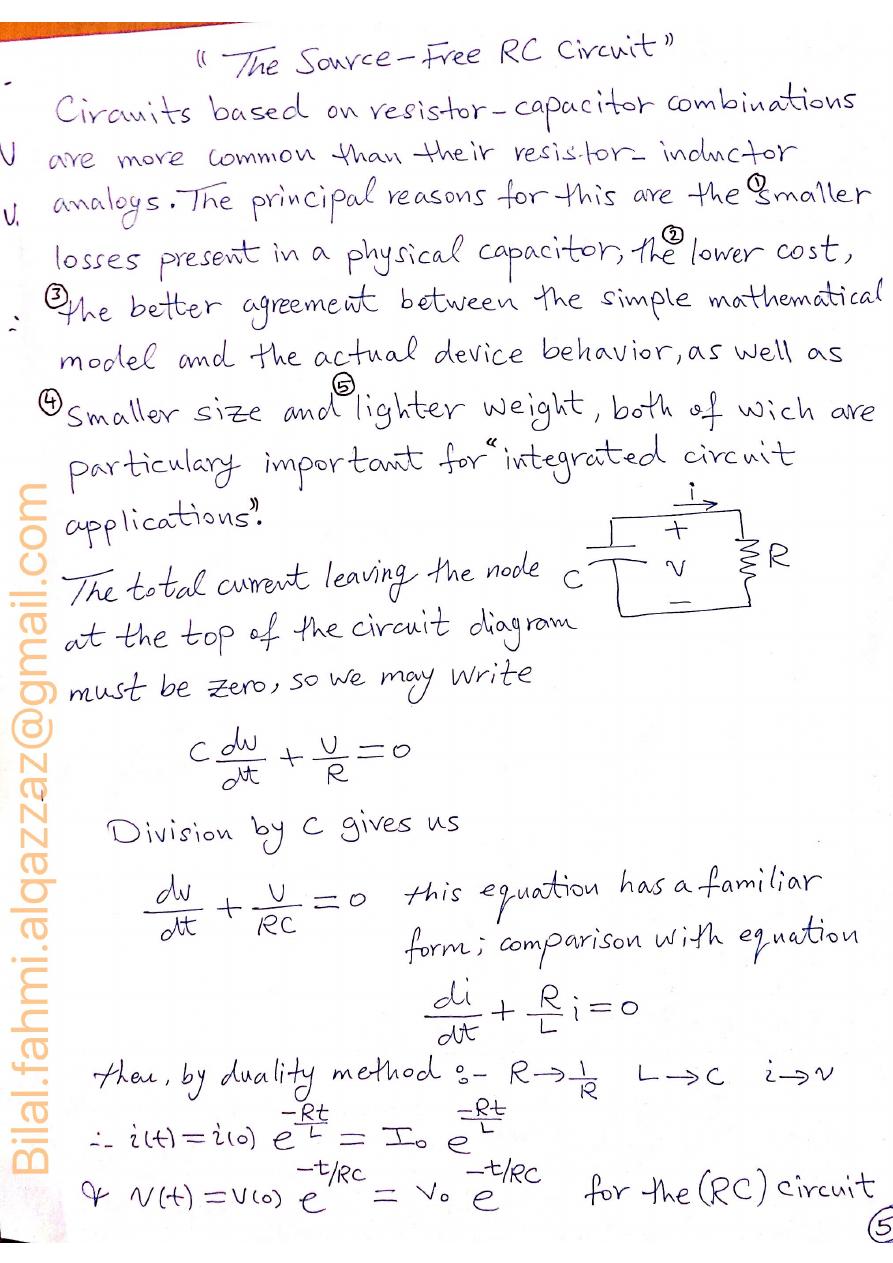 "The Source-Free RC Circuit"
Circuits based on resistor-capacitor combinations
are more common than their resistor- inductor
analogs. The principal reasons for this are the ① smaller
losses present in a physical capacitor, the ② lower cost,
③ the better agreement between the simple mathematical
model and the actual device behavior, as well as
④ smaller size and ⑤ lighter weight, both of wich are
particulary important for "integrated circuit
applications".
i
+
C
V
R
-
The total current leaving the node
at the top of the circuit diagram
must be zero, so we may write
C dv/dt + V/R = 0
Division by C gives us
dv/dt + V/RC = 0 this equation has a familiar
form; comparison with equation
di/dt + R/L i = 0
then, by duality method :- R→1/R L→C i→v
∴ i(t) = i(0) e^(-Rt/L) = I₀ e^(-Rt/L)
& V(t) = V(0) e^(-t/RC) = V₀ e^(-t/RC) for the (RC) circuit
⑤
Bilal.fahmi.alqazzaz@gmail.com